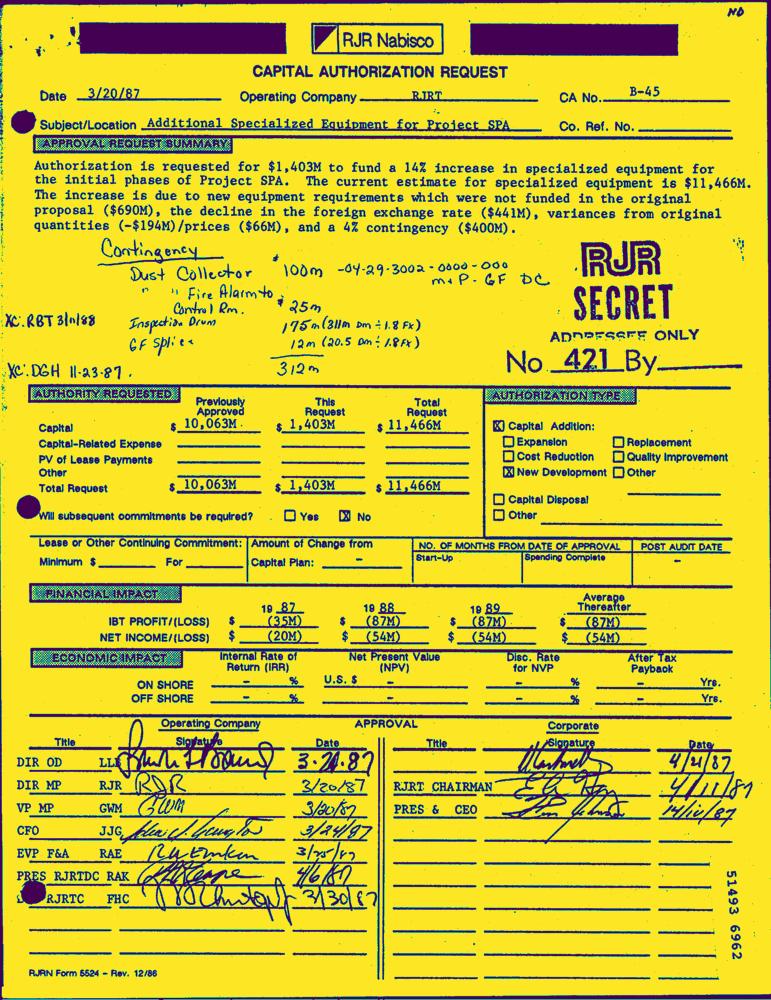 ND
RJR Nabisco
CAPITAL AUTHORIZATION REQUEST
Date 3/20/87 Operating Company RJRT CA No. B-45
Subject/Location Additional Specialized Equipment for Project SPA Co. Ref. No.
APPROVAL REQUEST SUMMARY
Authorization is requested for $1,403M to fund a 14% increase in specialized equipment for
the initial phases of Project SPA. The current estimate for specialized equipment is $11,466M.
The increase is due to new equipment requirements which were not funded in the original
proposal ($690M), the decline in the foreign exchange rate ($441M), variances from original
quantities (-$194M)/prices ($66M), and a 4% contingency ($400M).
Contingency
Dust Collector $100m -04-29-3002-0000-000
M+P-GF DC
" " Fire Alarm to
Control Rm. $25m
XC: RBT 3/11/88 Inspection Drum 175m (311m Dm ÷ 1.8 FX)
GF Splice 12m (20.5 Dm ÷ 1.8 FX)
XC: DGH 11-23-87. 312m
RJR
SECRET
ADDRESSEE ONLY
No 421 By
AUTHORITY REQUESTED
Previously Approved This Request Total Request
Capital $ 10,063M $ 1,403M $ 11,466M
Capital-Related Expense
PV of Lease Payments
Other
Total Request $ 10,063M $ 1,403M $ 11,466M
Will subsequent commitments be required? Yes X No
AUTHORIZATION TYPE
X Capital Addition:
Expansion Replacement
Cost Reduction Quality Improvement
X New Development Other
Capital Disposal
Other
Lease or Other Continuing Commitment: Amount of Change from NO. OF MONTHS FROM DATE OF APPROVAL POST AUDIT DATE
Minimum $ For Capital Plan: - Start-Up Spending Complete -
FINANCIAL IMPACT
19 87 19 88 19 89 Average Thereafter
IBT PROFIT/(LOSS) $ (35M) $ (87M) $ (87M) $ (87M)
NET INCOME/(LOSS) $ (20M) $ (54M) $ (54M) $ (54M)
ECONOMIC IMPACT
Internal Rate of Return (IRR) Net Present Value (NPV) Disc. Rate for NVP After Tax Payback
ON SHORE - % U.S. $ - - % - Yrs.
OFF SHORE - % - - % - Yrs.
APPROVAL
Operating Company Corporate
Title Signature Date Title Signature Date
DIR OD LLB 3-24-87 4/21/87
DIR MP RJR RJR 3/20/87 RJRT CHAIRMAN 4/11/87
VP MP GWM GWM 3/20/87 PRES & CEO
CFO JJG 3/24/87
EVP F&A RAE 3/25/87
PRES RJRTDC RAK 4/6/87
RJRTC FHC 3/30/87
51493 6962
RJRN Form 5524 - Rev. 12/86